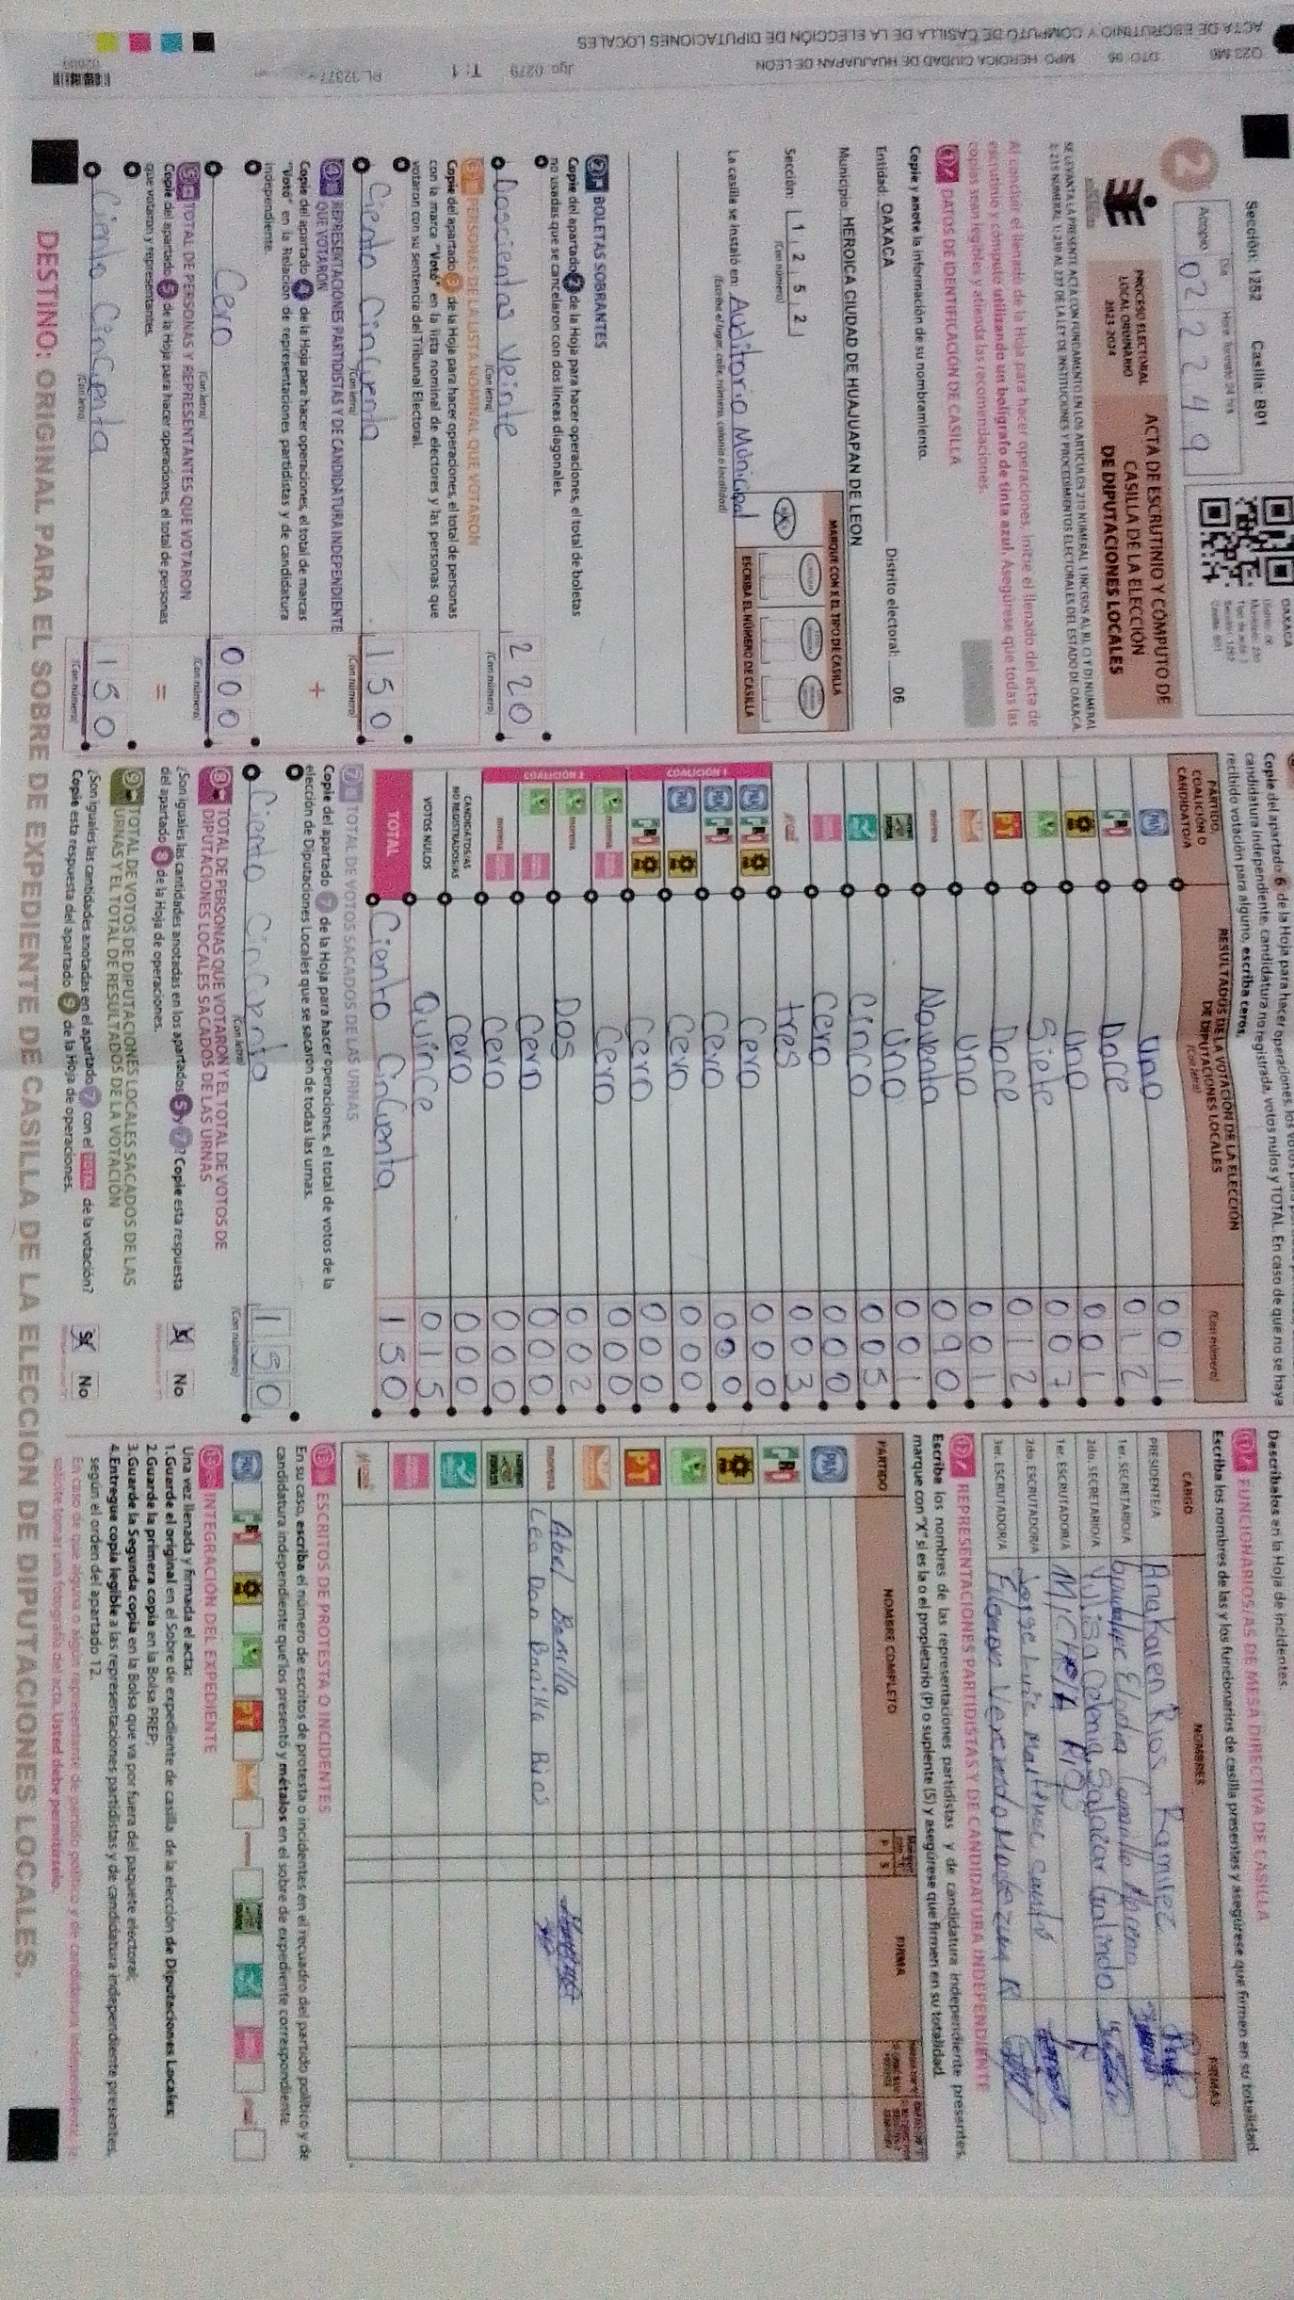 Sección: 1252 Casilla: B01
Acopio 02 22 49
Día Hora: formato 24 hrs
OAXACA
2
PROCESO ELECTORAL
LOCAL ORDINARIO
2023-2024
ACTA DE ESCRUTINIO Y CÓMPUTO DE
CASILLA DE LA ELECCIÓN
DE DIPUTACIONES LOCALES
Al concluir el llenado de la Hoja para hacer operaciones, inicie el llenado del acta de
escrutinio y cómputo utilizando un bolígrafo de tinta azul. Asegúrese que todas las
copias sean legibles y atienda las recomendaciones.
1 DATOS DE IDENTIFICACIÓN DE CASILLA
Copie y anote la información de su nombramiento.
Entidad: OAXACA Distrito electoral: 06
Municipio: HEROICA CIUDAD DE HUAJUAPAN DE LEON
Sección: 1 2 5 2
(Con número)
MARQUE CON X EL TIPO DE CASILLA
ESCRIBA EL NÚMERO DE CASILLA
La casilla se instaló en: Auditorio Municipal
(Escriba el lugar, calle, número, colonia o localidad)
2 BOLETAS SOBRANTES
Copie del apartado 2 de la Hoja para hacer operaciones, el total de boletas
no usadas que se cancelaron con dos líneas diagonales.
Doscientas Veinte 220
(Con letra) (Con número)
3 PERSONAS DE LA LISTA NOMINAL QUE VOTARON
Copie del apartado 3 de la Hoja para hacer operaciones, el total de personas
con la marca "Votó" en la lista nominal de electores y las personas que
votaron con su sentencia del Tribunal Electoral.
Ciento Cincuenta 150
(Con letra) (Con número)
4 REPRESENTACIONES PARTIDISTAS Y DE CANDIDATURA INDEPENDIENTE
QUE VOTARON
Copie del apartado 4 de la Hoja para hacer operaciones, el total de marcas
"Votó" en la Relación de representaciones partidistas y de candidatura
independiente.
+
Cero 000
(Con letra) (Con número)
5 TOTAL DE PERSONAS Y REPRESENTANTES QUE VOTARON
Copie del apartado 5 de la Hoja para hacer operaciones, el total de personas
que votaron y representantes.
=
Ciento Cincuenta 150
(Con letra) (Con número)
Copie del apartado 6 de la Hoja para hacer operaciones, los votos
candidatura independiente, candidatura no registrada, votos nulos y TOTAL. En caso de que no se haya
recibido votación para alguno, escriba ceros.
PARTIDO, COALICIÓN O CANDIDATO/A
RESULTADOS DE LA VOTACIÓN DE LA ELECCIÓN
DE DIPUTACIONES LOCALES
(Con letra) (Con número)
PAN Uno 001
PRI Doce 012
PRD Uno 001
Siete 007
PT Doce 012
Uno 001
morena Noventa 090
Uno 001
Cinco 005
Cero 000
tres 003
COALICIÓN 1
PAN PRI PRD Cero 000
PAN PRI Cero 000
PAN PRD Cero 000
PRI PRD Cero 000
COALICIÓN 2
morena Cero 000
morena Dos 002
Cero 000
morena Cero 000
CANDIDATOS/AS
NO REGISTRADOS/AS Cero 000
VOTOS NULOS Quince 015
TOTAL Ciento Cincuenta 150
7 TOTAL DE VOTOS SACADOS DE LAS URNAS
Copie del apartado 7 de la Hoja para hacer operaciones, el total de votos de la
elección de Diputaciones Locales que se sacaron de todas las urnas.
Ciento Cincuenta 150
(Con letra) (Con número)
8 TOTAL DE PERSONAS QUE VOTARON Y EL TOTAL DE VOTOS DE
DIPUTACIONES LOCALES SACADOS DE LAS URNAS
¿Son iguales las cantidades anotadas en los apartados 5 y 7? Copie esta respuesta
del apartado 8 de la Hoja de operaciones.
Sí No
9 TOTAL DE VOTOS DE DIPUTACIONES LOCALES SACADOS DE LAS
URNAS Y EL TOTAL DE RESULTADOS DE LA VOTACIÓN
¿Son iguales las cantidades anotadas en el apartado 7 con el TOTAL de la votación?
Copie esta respuesta del apartado 9 de la Hoja de operaciones.
Sí No
Descríbalos en la Hoja de incidentes.
11 FUNCIONARIOS/AS DE MESA DIRECTIVA DE CASILLA
Escriba los nombres de las y los funcionarios de casilla presentes y asegúrese que firmen en su totalidad.
CARGO NOMBRES FIRMAS
PRESIDENTE/A Ana Karen Rios Ramirez
1er. SECRETARIO/A
2do. SECRETARIO/A Salazar Galindo
1er. ESCRUTADOR/A
2do. ESCRUTADOR/A Jorge Luis
3er. ESCRUTADOR/A
12 REPRESENTACIONES PARTIDISTAS Y DE CANDIDATURA INDEPENDIENTE
Escriba los nombres de las representaciones partidistas y de candidatura independiente presentes,
marque con "X" si es la o el propietario (P) o suplente (S) y asegúrese que firmen en su totalidad.
PARTIDO NOMBRE COMPLETO P S FIRMA
PAN
PRI
PRD
PT
Abel Bonilla
morena Leo Dan Bonilla Rios
13 ESCRITOS DE PROTESTA O INCIDENTES
En su caso, escriba el número de escritos de protesta o incidentes en el recuadro del partido político y de
candidatura independiente que los presentó y métalos en el sobre de expediente correspondiente.
INTEGRACIÓN DEL EXPEDIENTE
Una vez llenada y firmada el acta:
1.Guarde el original en el Sobre de expediente de casilla de la elección de Diputaciones Locales;
2.Guarde la primera copia en la Bolsa PREP;
3.Guarde la Segunda copia en la Bolsa que va por fuera del paquete electoral;
4.Entregue copia legible a las representaciones partidistas y de candidatura independiente presentes,
según el orden del apartado 12.
En caso de que alguna o algún representante de partido político y de candidatura independiente le
solicite tomar una fotografía del acta, Usted debe permitírselo.
DESTINO: ORIGINAL PARA EL SOBRE DE EXPEDIENTE DE CASILLA DE LA ELECCIÓN DE DIPUTACIONES LOCALES.
ACTA DE ESCRUTINIO Y CÓMPUTO DE CASILLA DE LA ELECCIÓN DE DIPUTACIONES LOCALES
MPO: HEROICA CIUDAD DE HUAJUAPAN DE LEON